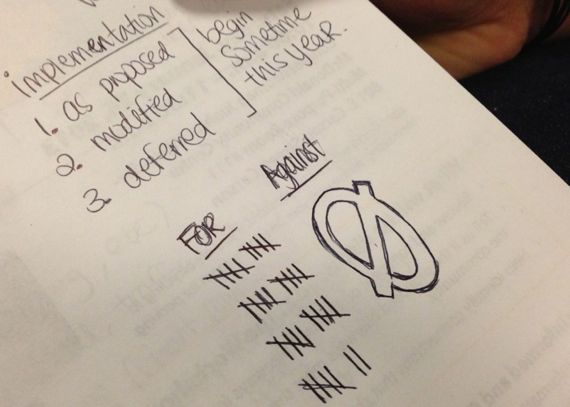 implementation
1. as proposed
2. modified
3. deferred
begin
sometime
this year.
FOR
Against
Ø